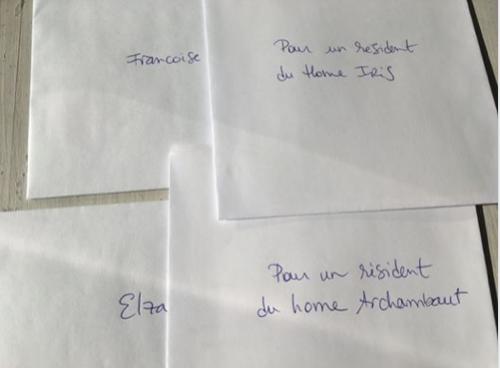 Francoise
Pour un resident
du Home IRIS
Elza
Pour un résident
du home Archambaut